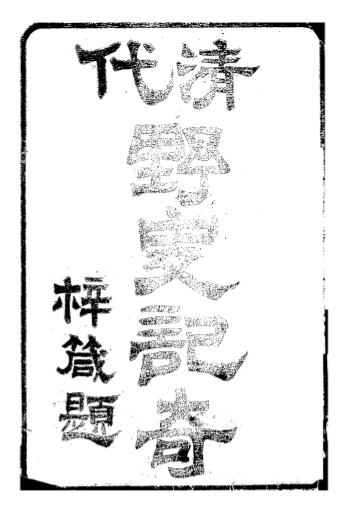 清代
野叟記奇
梓箴題